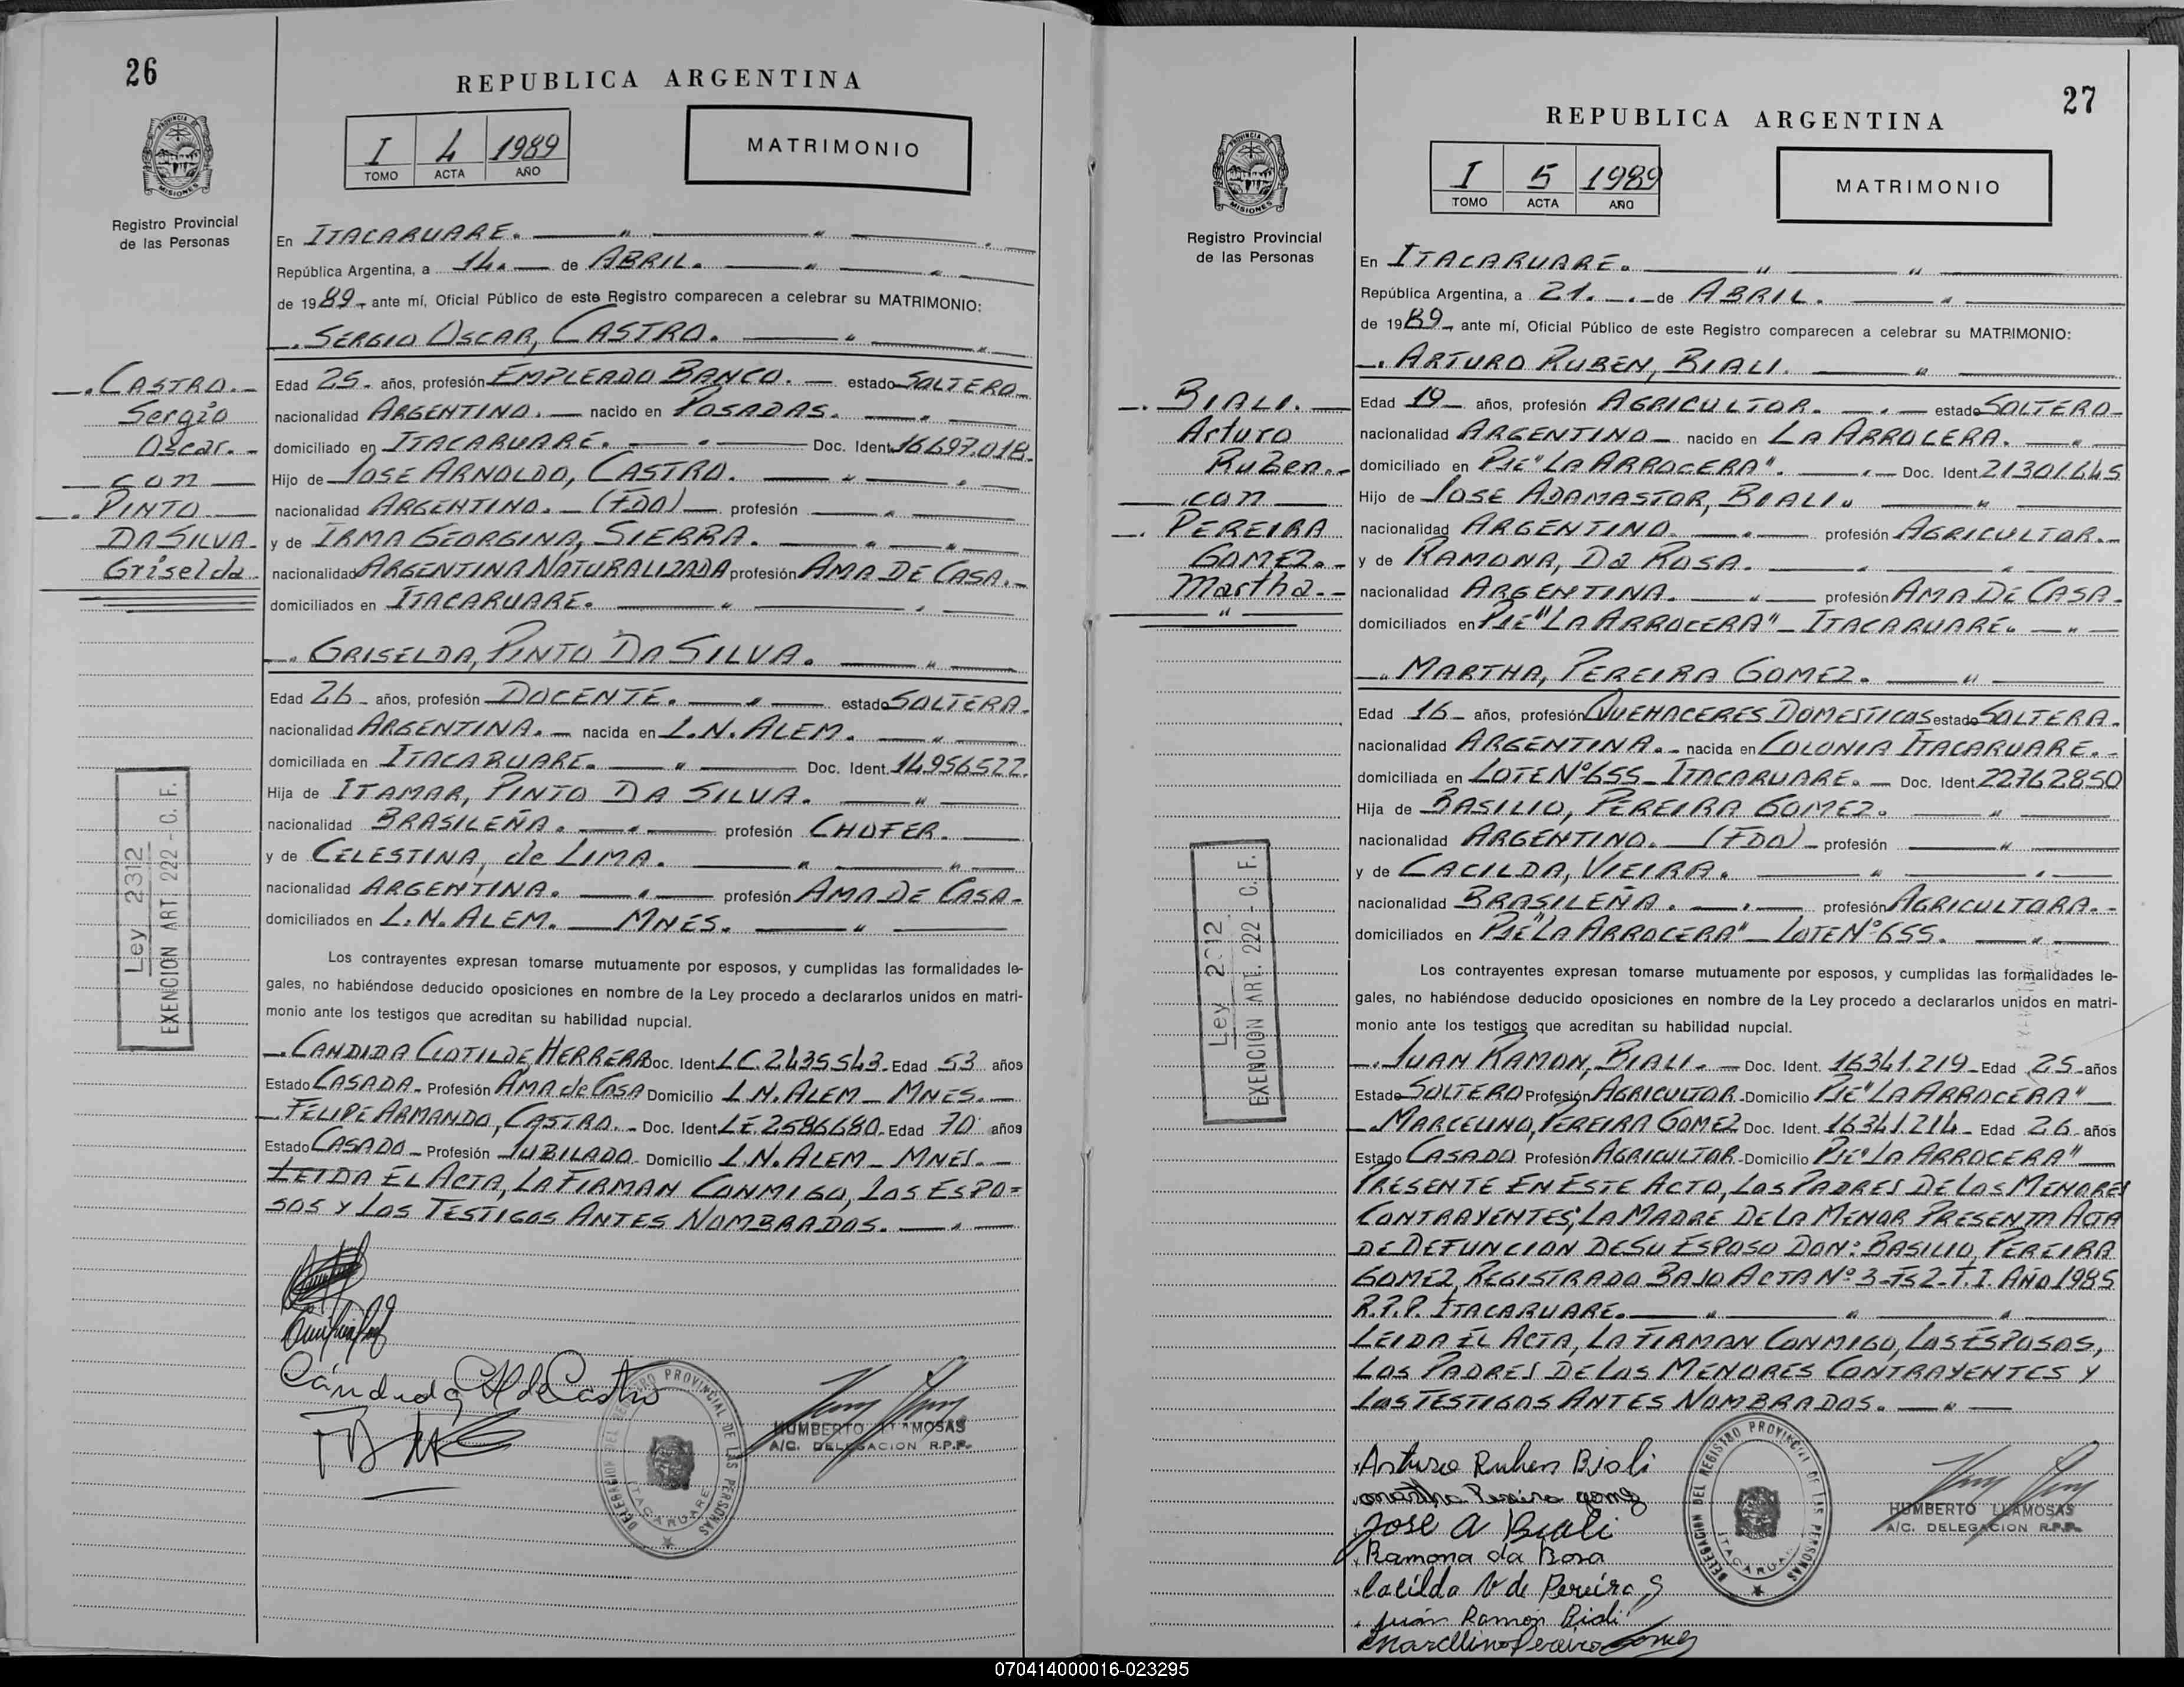 26
REPUBLICA ARGENTINA
I 4 1989
TOMO ACTA AÑO
MATRIMONIO
PROVINCIA DE MISIONES
Registro Provincial
de las Personas
En ITACARUARE.
República Argentina, a 14. de ABRIL.
de 1989 ante mí, Oficial Público de este Registro comparecen a celebrar su MATRIMONIO:
SERGIO OSCAR, CASTRO.
CASTRO.
Sergio
Oscar.
con
PINTO
DA SILVA
Griselda
Edad 25 años, profesión EMPLEADO BANCO. estado SOLTERO
nacionalidad ARGENTINO. nacido en POSADAS.
domiciliado en ITACARUARE. Doc. Ident. 16697.018.
Hijo de JOSE ARNOLDO, CASTRO.
nacionalidad ARGENTINO. (FDO) profesión
y de IRMA GEORGINA, SIERRA.
nacionalidad ARGENTINA NATURALIZADA profesión AMA DE CASA.
domiciliados en ITACARUARE.
GRISELDA, PINTO DA SILVA.
Edad 26 años, profesión DOCENTE. estado SOLTERA.
nacionalidad ARGENTINA. nacida en L.N. ALEM.
domiciliada en ITACARUARE. Doc. Ident. 14956522.
Hija de ITAMAR, PINTO DA SILVA.
nacionalidad BRASILEÑA. profesión CHOFER.
y de CELESTINA, de LIMA.
nacionalidad ARGENTINA. profesión AMA DE CASA
domiciliados en L.N. ALEM. MNES.
Ley 2312
EXENCION ART. 222 - C. F.
Los contrayentes expresan tomarse mutuamente por esposos, y cumplidas las formalidades le-
gales, no habiéndose deducido oposiciones en nombre de la Ley procedo a declararlos unidos en matri-
monio ante los testigos que acreditan su habilidad nupcial.
CANDIDA CLOTILDE HERRERA Doc. Ident. LC. 2435543 Edad 53 años
Estado CASADA Profesión AMA de CASA Domicilio L.N. ALEM - MNES.
FELIPE ARMANDO, CASTRO. Doc. Ident. LE 2586680 Edad 70 años
Estado CASADO Profesión JUBILADO Domicilio L.N. ALEM - MNES.
LEIDA EL ACTA, LA FIRMAN CONMIGO, LOS ESPO=
SOS Y LOS TESTIGOS ANTES NOMBRADOS.
Cándida C H de Castro
DELEGACION DEL REGISTRO PROVINCIAL DE LAS PERSONAS
ITACARUARE
HUMBERTO LLAMOSAS
A/C. DELEGACION R.P.P.
27
REPUBLICA ARGENTINA
I 5 1989
TOMO ACTA AÑO
MATRIMONIO
PROVINCIA DE MISIONES
Registro Provincial
de las Personas
En ITACARUARE.
República Argentina, a 21. de ABRIL.
de 1989 ante mí, Oficial Público de este Registro comparecen a celebrar su MATRIMONIO:
ARTURO RUBEN, BIALI.
BIALI.
Arturo
Ruben.
con
PEREIRA
GOMEZ.
Martha.
Edad 19 años, profesión AGRICULTOR. estado SOLTERO
nacionalidad ARGENTINO nacido en LA ARROCERA.
domiciliado en PJE "LA ARROCERA". Doc. Ident 21301645
Hijo de JOSE ADAMASTOR, BIALI.
nacionalidad ARGENTINO. profesión AGRICULTOR.
y de RAMONA, Da ROSA.
nacionalidad ARGENTINA. profesión AMA DE CASA.
domiciliados en PJE "LA ARROCERA" - ITACARUARE.
MARTHA, PEREIRA GOMEZ.
Edad 16 años, profesión QUEHACERES DOMESTICOS estado SOLTERA.
nacionalidad ARGENTINA. nacida en COLONIA ITACARUARE.
domiciliada en LOTE Nº 655 - ITACARUARE. Doc. Ident 22762850
Hija de BASILIO, PEREIRA GOMEZ.
nacionalidad ARGENTINO. (FDO) profesión
y de CACILDA, VIEIRA.
nacionalidad BRASILEÑA. profesión AGRICULTORA.
domiciliados en PJE "LA ARROCERA" - LOTE Nº 655.
Ley 2312
EXENCION ART. 222 - C. F.
Los contrayentes expresan tomarse mutuamente por esposos, y cumplidas las formalidades le-
gales, no habiéndose deducido oposiciones en nombre de la Ley procedo a declararlos unidos en matri-
monio ante los testigos que acreditan su habilidad nupcial.
JUAN RAMON, BIALI. Doc. Ident. 16341.219 Edad 25 años
Estado SOLTERO Profesión AGRICULTOR Domicilio PJE "LA ARROCERA"
MARCELINO, PEREIRA GOMEZ Doc. Ident. 16341.214 Edad 26 años
Estado CASADO Profesión AGRICULTOR Domicilio PJE "LA ARROCERA"
PRESENTE EN ESTE ACTO, LOS PADRES DE LOS MENORES
CONTRAYENTES; LA MADRE DE LA MENOR PRESENTA ACTA
DE DEFUNCION DE SU ESPOSO DON: BASILIO, PEREIRA
GOMEZ, REGISTRADO BAJO ACTA Nº 3-Fs 2-T.I. AÑO 1985
R.P.P. ITACARUARE.
LEIDA EL ACTA, LA FIRMAN CONMIGO, LOS ESPOSOS,
LOS PADRES DE LOS MENORES CONTRAYENTES Y
LOS TESTIGOS ANTES NOMBRADOS.
Arturo Ruben Biali
martha Pereira gomez
Jose A Biali
Ramona da Rosa
Cacilda V de Pereira G
Juan Ramon Biali
Marcelino Pereira Gomez
DELEGACION DEL REGISTRO PROVINCIAL DE LAS PERSONAS
ITACARUARE
HUMBERTO LLAMOSAS
A/C. DELEGACION R.P.P.
070414000016-023295